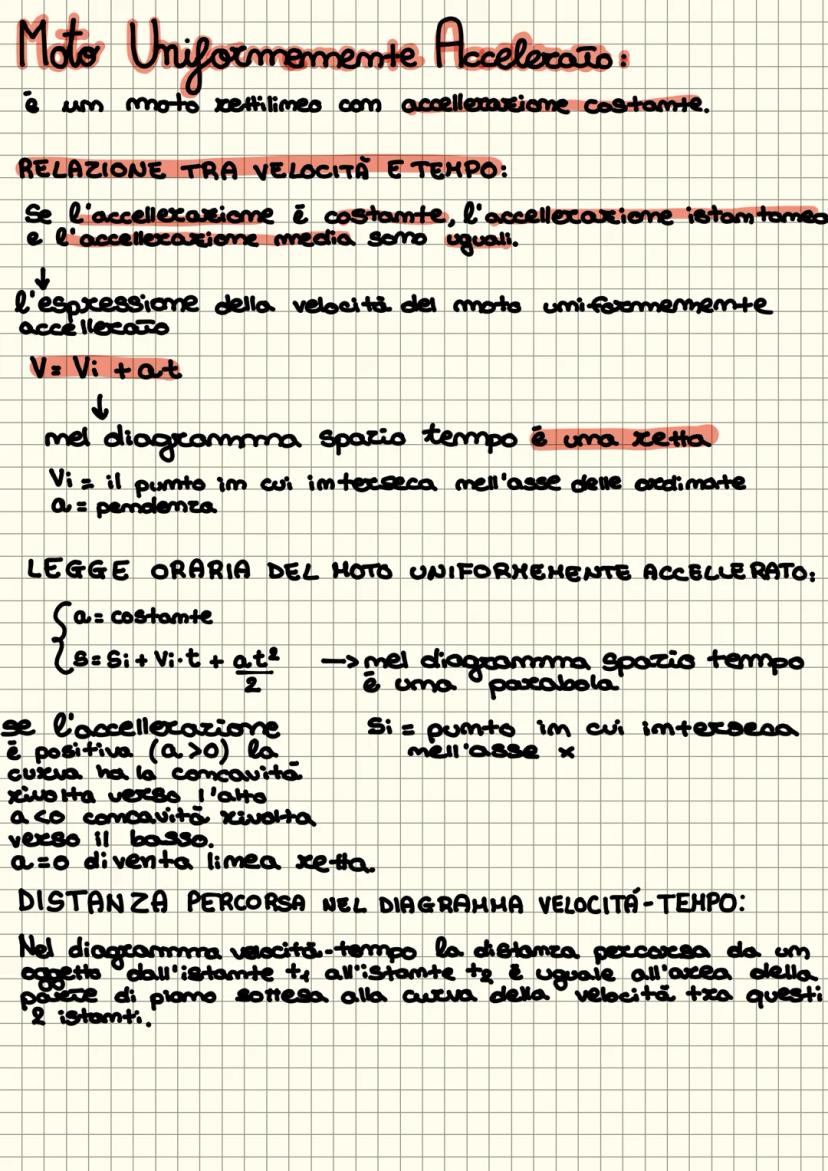 Moto Uniformemente Accelerato:
è un moto rettilineo con accellerazione costante.
RELAZIONE TRA VELOCITÀ E TEMPO:
Se l'accellerazione è costante, l'accellerazione istantanea
e l'accellerazione media sono uguali.
↓
l'espressione della velocità del moto uniformemente
accellerato
V = Vi + a.t
↓
nel diagramma spazio tempo è una retta
Vi = il punto in cui interseca nell'asse delle ordinate
a = pendenza
LEGGE ORARIA DEL MOTO UNIFORMEMENTE ACCELLERATO:
a = costante
s = Si + Vi·t + at²/2 → nel diagramma spazio tempo
è una parabola
se l'accellerazione Si = punto in cui interseca
è positiva (a>0) la nell'asse x
curva ha la concavità
rivolta verso l'alto
a<0 concavità rivolta
verso il basso.
a=0 diventa linea retta.
DISTANZA PERCORSA NEL DIAGRAMMA VELOCITÁ-TEMPO:
Nel diagramma velocità-tempo la distanza percorsa da un
oggetto dall'istante t₁ all'istante t₂ è uguale all'area della
di piano sottesa alla curva della velocità tra questi
2 istanti.